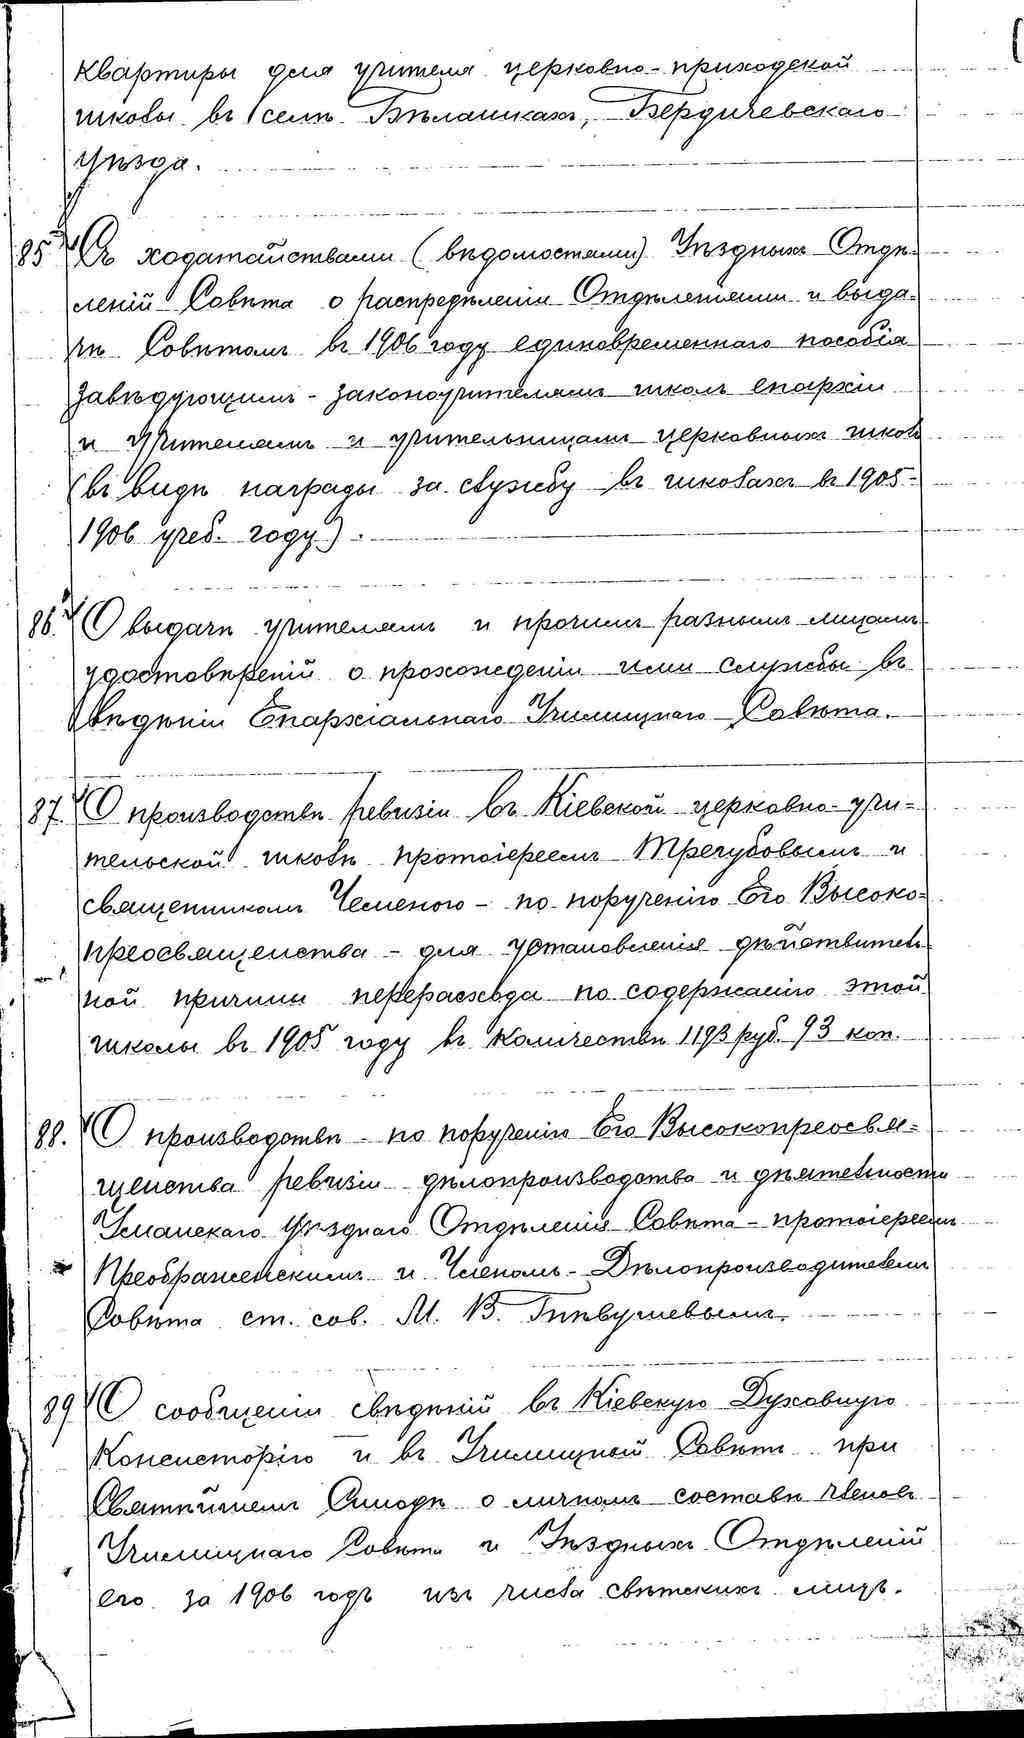 квартиры для учителя церковно-приходской
школы въ селѣ Бѣлашкахъ, Бердичевскаго
уѣзда.
85 Съ ходатайствами (вѣдомостями) Уѣздныхъ Отдѣ-
леній Совѣта о распредѣленіи Отдѣленіями и выда-
чѣ Совѣтомъ въ 1906 году единовременнаго пособія
завѣдующимъ - законоучителямъ школъ епархіи
и учителямъ и учительницамъ церковныхъ школъ
(въ видѣ награды за службу въ школахъ въ 1905-
1906 учеб. году).
86. О выдачѣ учителямъ и прочимъ разнымъ лицамъ
удостовѣреній о прохожденіи ими службы въ
вѣдѣніи Епархіальнаго Училищнаго Совѣта.
87. О производствѣ ревизіи въ Кіевской церковно-учи-
тельской школѣ протоіереемъ Трегубовымъ и
священникомъ Чемено­го - по порученію Его Высоко-
преосвященства - для установленія дѣйствитель
ной причины перерасхода по содержанію этой
школы въ 1905 году въ количествѣ 1193 руб. 93 коп.
88. О производствѣ - по порученію Его Высокопреосвя-
щенства ревизіи дѣлопроизводства и дѣятельности
Уманскаго Уѣзднаго Отдѣленія Совѣта - протоіереемъ
Преображенскимъ и Членомъ-Дѣлопроизводителемъ
Совѣта ст. сов. М. В. Гнѣвушевымъ.
89 О сообщеніи свѣдѣній въ Кіевскую Духовную
Консисторію и въ Училищный Совѣтъ при
Святѣйшемъ Синодѣ о личномъ составѣ членовъ
Училищнаго Совѣта и Уѣздныхъ Отдѣленій
его за 1906 годъ изъ числа свѣтскихъ лицъ.